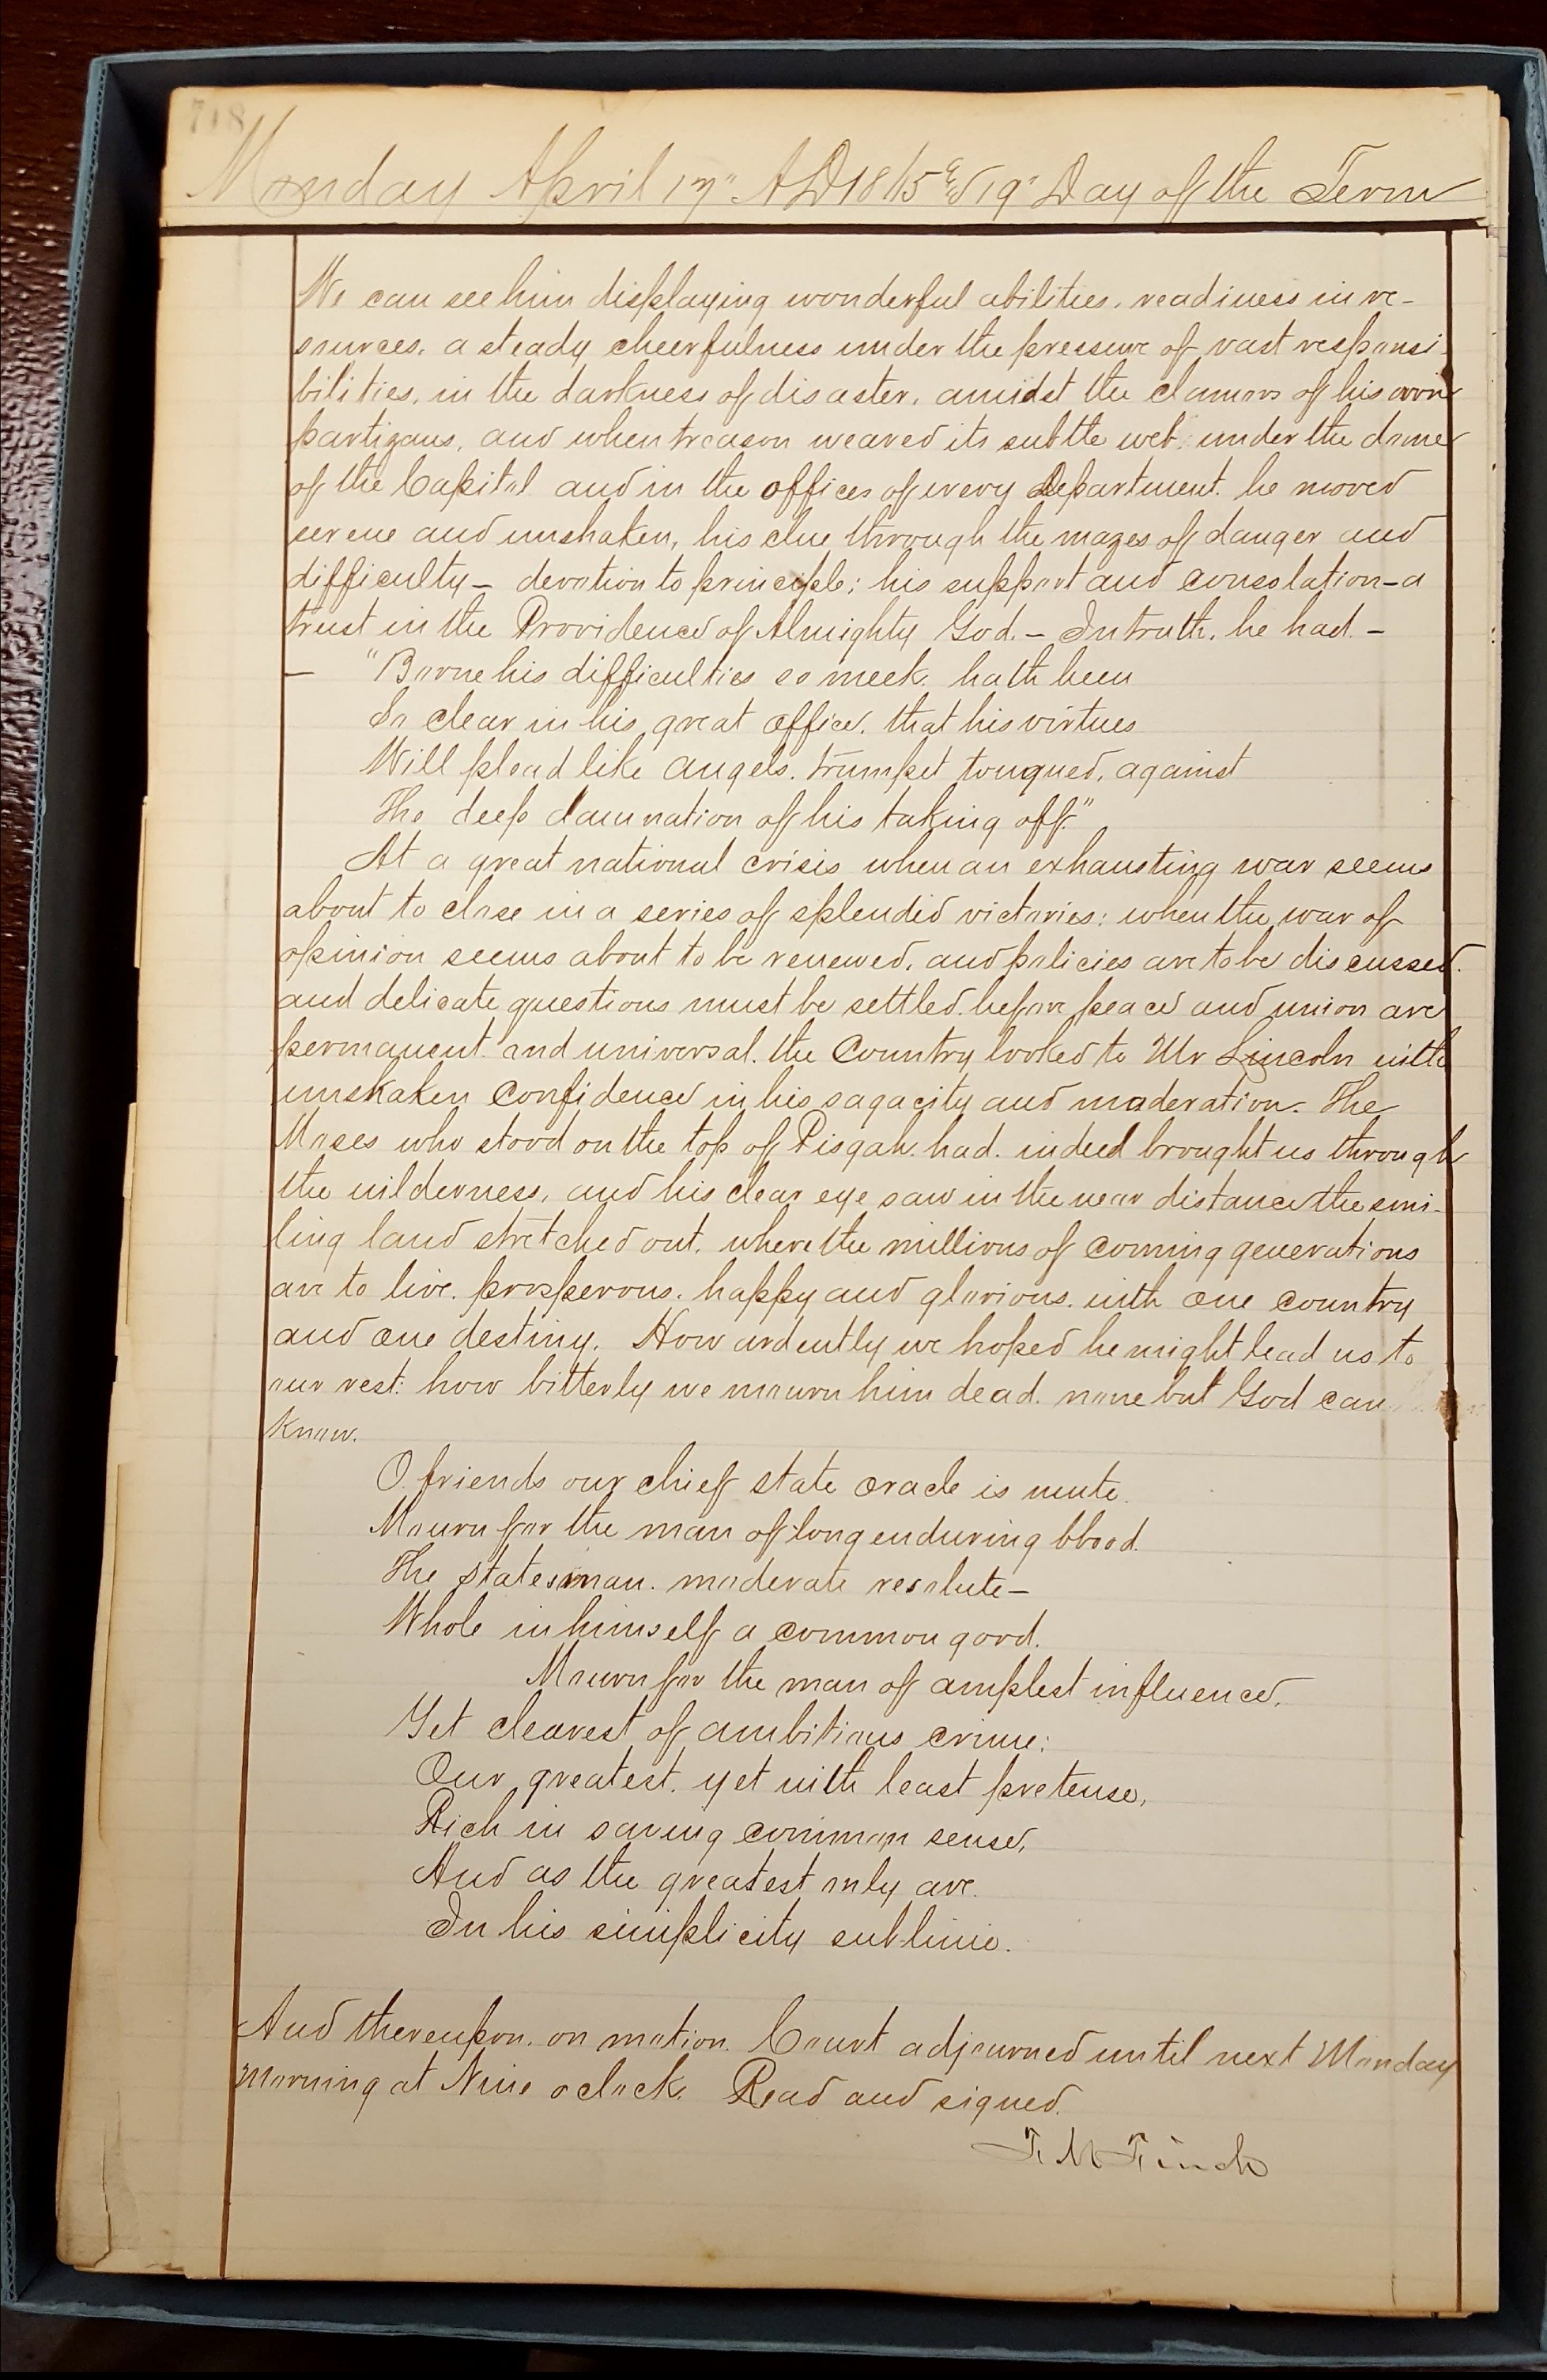 718
Monday April 17" AD 1865 & 19" Day of the Term
We can see him displaying wonderful abilities, readiness in re-
sources, a steady cheerfulness under the pressure of vast responsi-
bilities, in the darkness of disaster, amidst the clamors of his own
partizans, and when treason weaved its subtle web under the dome
of the Capitol and in the offices of every Department. he moved
serene and unshaken, his clue through the mazes of danger and
difficulty – devotion to principle; his support and consolation – a
trust in the Providence of Almighty God. – In truth, he had –
– "Borne his difficulties so meek, hath been
So clear in his great office, that his virtues
Will plead like angels. trumpet tongued, against
The deep damnation of his taking off."
At a great national crisis when an exhausting war seems
about to close in a series of splendid victories: when the war of
opinion seems about to be renewed, and policies are to be discussed.
and delicate questions must be settled. before peace and union are
permanent and universal. the Country looked to Mr Lincoln with
unshaken Confidence in his sagacity and moderation. The
Moses who stood on the top of Pisgah. had. indeed brought us through
the wilderness, and his clear eye saw in the near distance the smi-
ling land stretched out, where the millions of coming generations
are to live. prosperous. happy and glorious. with one country
and one destiny. How ardently we hoped he might lead us to
our rest: how bitterly we mourn him dead. none but God can
know.
O. friends our chief state oracle is mute.
Mourn for the man of long enduring blood.
The statesman. moderate resolute –
Whole in himself a common good.
Mourn for the man of amplest influence,
Yet clearest of ambitious crime:
Our greatest. yet with least pretense,
Rich in saving common sense,
And as the greatest only are.
In his simplicity sublime.
And thereupon. on motion. Court adjourned until next Monday
Morning at Nine oclock. Read and signed.
F. M Finch